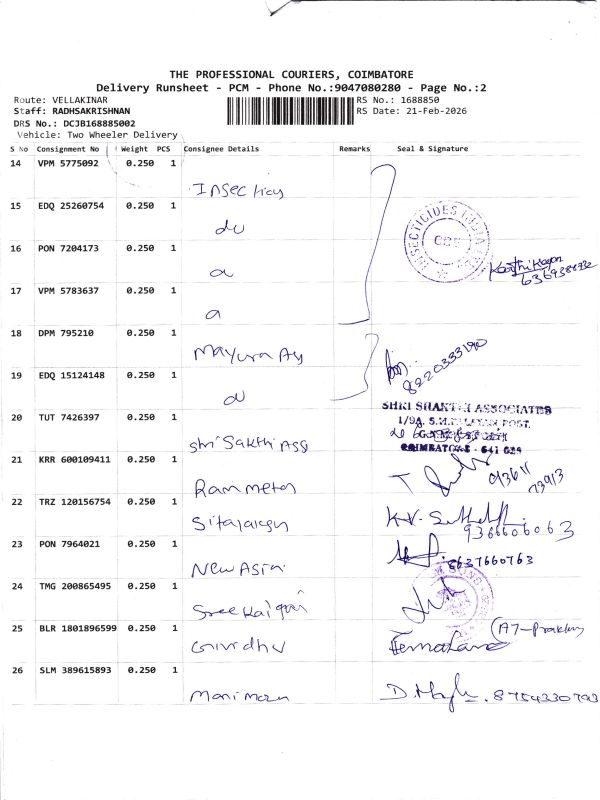 THE PROFESSIONAL COURIERS, COIMBATORE
Delivery Runsheet - PCM - Phone No.:9047080280 - Page No.:2
Route: VELLAKINAR
Staff: RADHSAKRISHNAN
DRS No.: DCJB168885002
Vehicle: Two Wheeler Delivery
RS No.: 1688850
RS Date: 21-Feb-2026
S No Consignment No Weight PCS Consignee Details Remarks Seal & Signature
14 VPM 5775092 0.250 1
15 EDQ 25260754 0.250 1 do
INSECTICIDES INDIA
16 PON 7204173 0.250 1
17 VPM 5783637 0.250 1
18 DPM 795210 0.250 1 Mayura
8220333190
19 EDQ 15124148 0.250 1
SHRI SHAKTHI ASSOCIATES
1/9A,
POST.
COIMBATORE - 641 029
20 TUT 7426397 0.250 1 Shri Sakthi Ass
21 KRR 600109411 0.250 1 Ram meters
93611
73913
22 TRZ 120156754 0.250 1
9366606063
23 PON 7964021 0.250 1 New Asia
8637660763
24 TMG 200865495 0.250 1
25 BLR 1801896599 0.250 1
26 SLM 389615893 0.250 1
8754330793